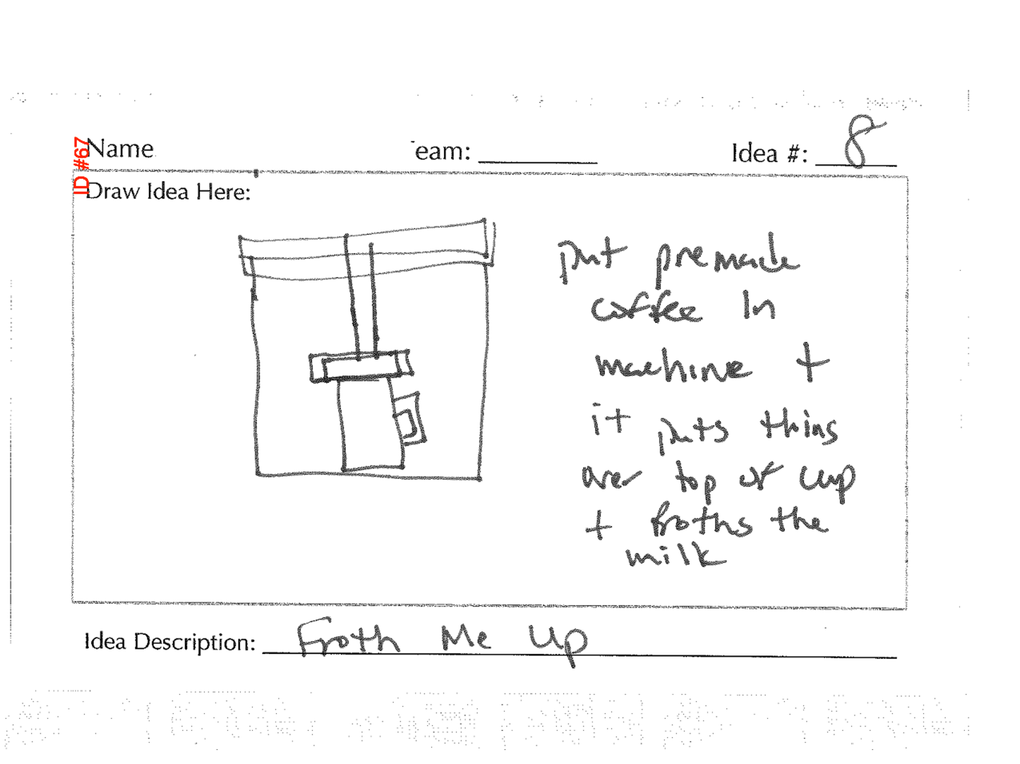 ID #67
Name
eam:
Idea #: 8
Draw Idea Here:
put premade
coffee in
machine +
it puts thing
over top of cup
+ froths the
milk
Idea Description: Froth Me Up